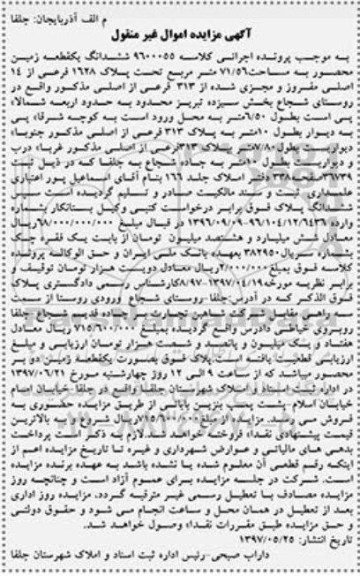 م الف آذربایجان: جلفا
آگهی مزایده اموال غیر منقول
به موجب پرونده اجرائی کلاسه 9600055 ششدانگ یکقطعه زمین
محصور به مساحت 71/56 متر مربع تحت پلاک 1628 فرعی از 14
اصلی مفروز و مجزی شده از 313 فرعی از اصلی مذکور واقع در
روستای شجاع بخش سیزده تبریز محدود به حدود اربعه شمالا:
پی است بطول 6/50متر به محل ورود است به کوچه شرقا: پی
به دیوار بطول 10متر به پلاک 313 فرعی از اصلی مذکور جنوبا:
دیواریست بطول 7/80متر پلاک 313فرعی از اصلی مذکور غربا: درب
و دیواریست بطول 10متر به جاده شجاع به جلفا که در ذیل ثبت
36739 صفحه 338 دفتر املاک جلد 166 بنام آقای اسماعیل پور اعتباری
علمداری ثبت و سند مالکیت صادر و تسلیم گردیده است سپس
ششدانگ پلاک فوق برابر درخواست کتبی وکیل بستانکار بشماره
وارده 96/104/12/6436-1396/09/09 در قبال مبلغ 68/000/000/000ریال
معادل شش میلیارد و هشتصد میلیون تومان از بابت یک فقره چک
بشماره سریال 382950 بعهده بانک ملی ایران و حق الوکاله پرونده
کلاسه فوق بمبلغ 2/000/000ریال معادل دویست هزار تومان توقیف و
برابر نظریه مورخه 1397/04/19-8/97کارشناس رسمی دادگستری پلاک
فوق الذکر که در آدرس:جلفا-روستای شجاع ورودی روستا از سمت
سه راهی مقابل شرکت شاهین تجارت، کنار جاده قدیم شجاع جلفا
روبروی خیاطی دادرس واقع گردیده بمبلغ 715/600/000 ریال معادل
هفتاد و یک میلیون و پانصد و شصت هزار تومان ارزیابی و مبلغ
ارزیابی قطعیت یافته است. پلاک فوق بصورت یکقطعه زمین دو بر
محصور میباشد که از ساعت 9 الی 12 روز چهارشنبه مورخ 1397/06/21
در اداره ثبت اسناد و املاک شهرستان جلفا واقع در جلفا خیابان امام
خیابان اسلام -پشت پمپ بنزین بابائی از طریق مزایده حضوری به
فروش می رسد. مزایده از مبلغ 715/600/000ریال شروع و به بالاترین
قیمت پیشنهادی نقدا فروخته خواهد شد.لازم به ذکر است پرداخت
بدهی های مالیاتی و عوارض شهرداری و غیره تا تاریخ مزایده اعم از
اینکه رقم قطعی آن معلوم شده یا نشده باشد به عهده برنده مزایده
است. شرکت در جلسه مزایده برای عموم آزاد است و چنانچه روز
مزایده مصادف با تعطیل رسمی غیر مترقبه گردد، مزایده روز اداری
بعد از تعطیل در همان محل و ساعت انجام می شود و حقوق دولتی
و حق مزایده طبق مقررات نقدا، وصول خواهد شد.
تاریخ انتشار: 1397/05/25
داراب صبحی-رئیس اداره ثبت اسناد و املاک شهرستان جلفا